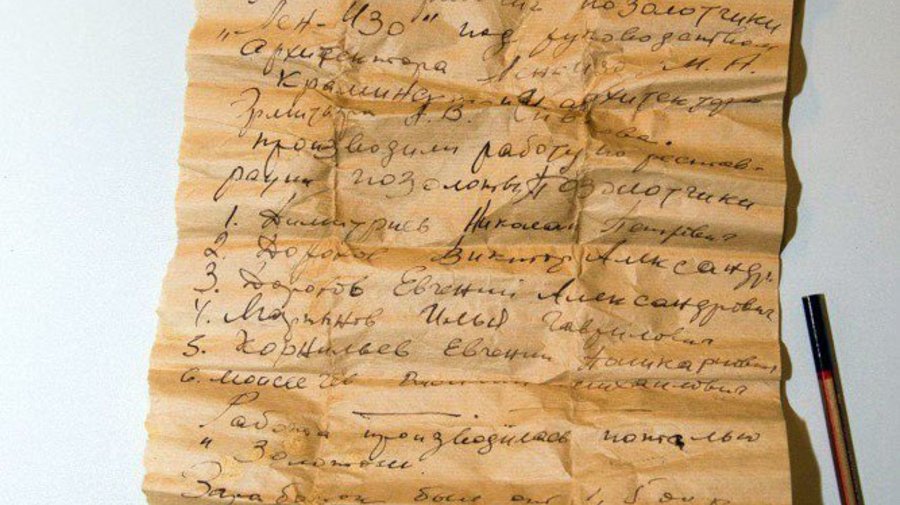 позолотчики
"Лен-Изо" под руководством
Архитектора Лен-Изо М. Н.
Эрмитажа А. В.
производили работу по рестав-
рации позолоты Позолотчики
1. Димитриев Николай Петрович
2. Доронов Виктор Александр.
3. Доронов Евгений Александрович
4. Мартынов Илья Гаврилович
5. Корнильев Евгений
6. Моисеичев Михаилович
Работа производилась поталью
" Золотом.
Заработок был от 1,5 до